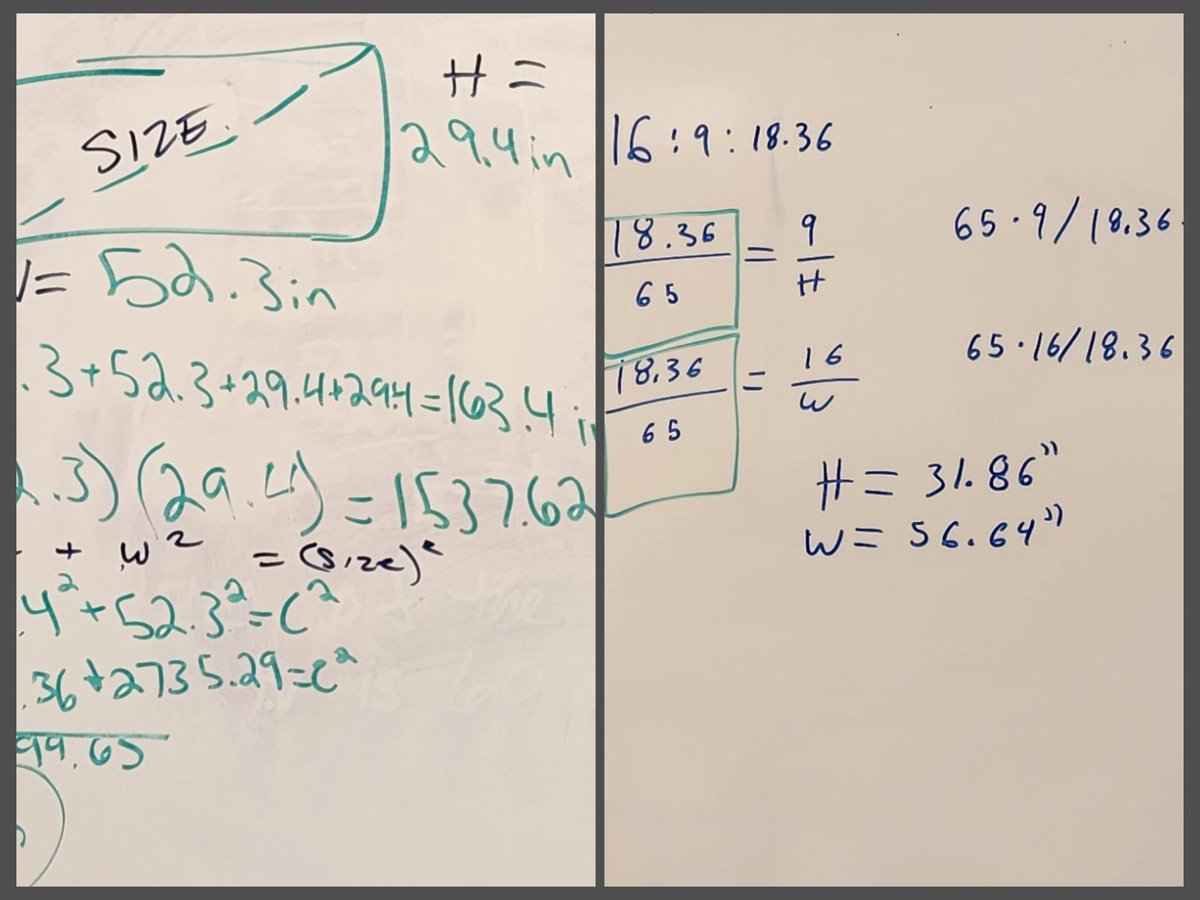 H =
SIZE.
29.4in
W= 52.3in
.3+52.3+29.4+29.4=163.4 in
2.3)(29.4)=1537.62
+ w² = (Size)²
.4²+52.3²=C²
.36+2735.29=C²
99.65
16:9:18.36
18.36/65 = 9/H
65·9/18.36
18.36/65 = 16/W
65·16/18.36
H = 31.86"
W = 56.64"